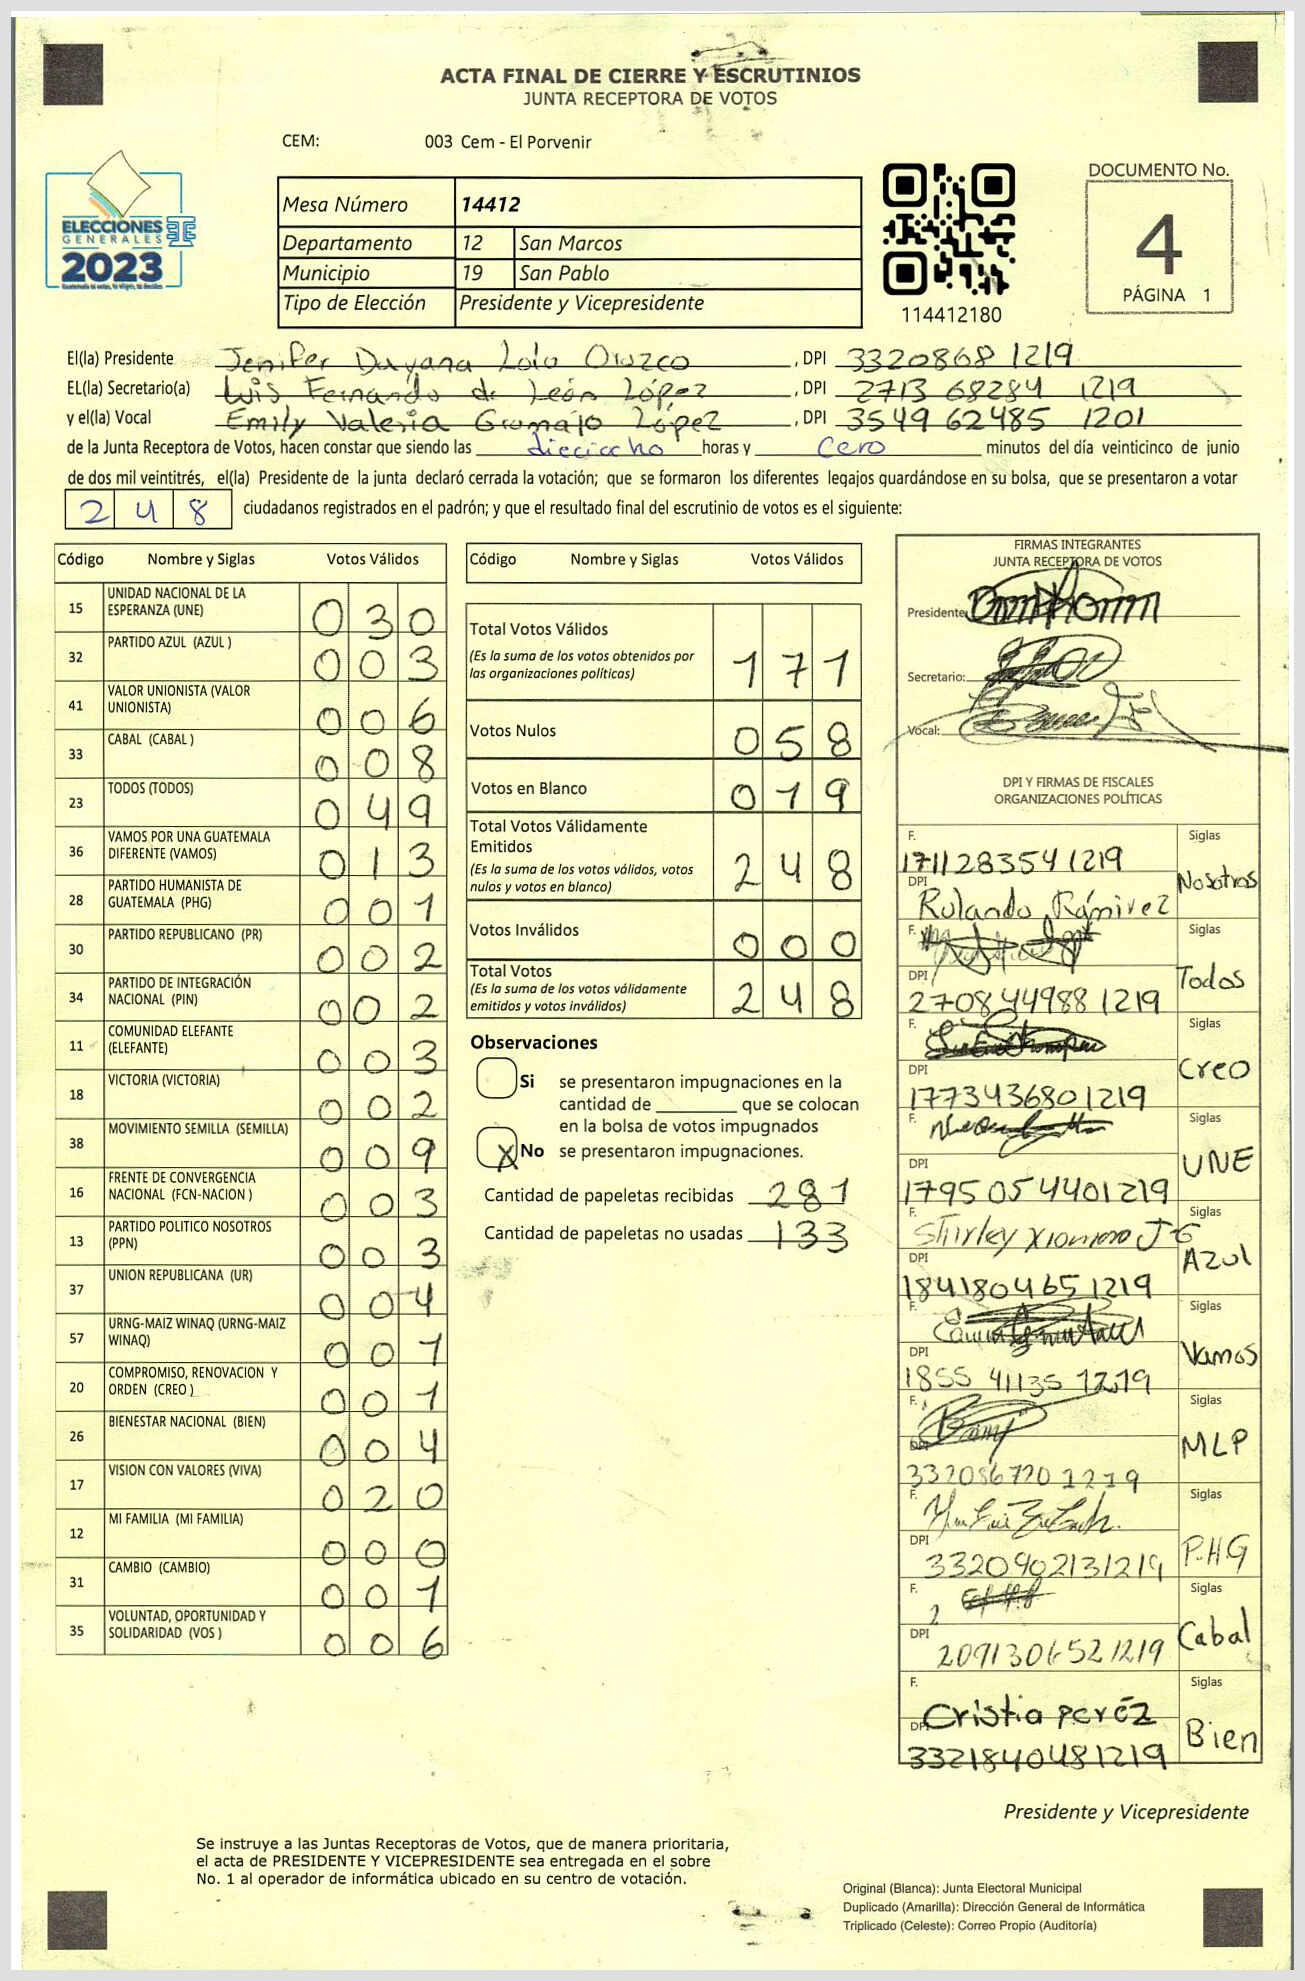 ACTA FINAL DE CIERRE Y ESCRUTINIOS
JUNTA RECEPTORA DE VOTOS
CEM: 003 Cem - El Porvenir
ELECCIONES
GENERALES
2023
Mesa Número 14412
Departamento 12 San Marcos
Municipio 19 San Pablo
Tipo de Elección Presidente y Vicepresidente
114412180
DOCUMENTO No.
4
PÁGINA 1
El(la) Presidente Jenifer Dayana Lolo Orozco , DPI 33208681219
EL(la) Secretario(a) Luis Fernando de León López , DPI 2713 68284 1219
y el(la) Vocal Emily Valeria Gramajo López , DPI 3549 62485 1201
de la Junta Receptora de Votos, hacen constar que siendo las dieciocho horas y cero minutos del día veinticinco de junio
de dos mil veintitrés, el(la) Presidente de la junta declaró cerrada la votación; que se formaron los diferentes legajos guardándose en su bolsa, que se presentaron a votar
248 ciudadanos registrados en el padrón; y que el resultado final del escrutinio de votos es el siguiente:
Código Nombre y Siglas Votos Válidos
15 UNIDAD NACIONAL DE LA ESPERANZA (UNE) 030
32 PARTIDO AZUL (AZUL ) 003
41 VALOR UNIONISTA (VALOR UNIONISTA) 006
33 CABAL (CABAL ) 008
23 TODOS (TODOS) 049
36 VAMOS POR UNA GUATEMALA DIFERENTE (VAMOS) 013
28 PARTIDO HUMANISTA DE GUATEMALA (PHG) 001
30 PARTIDO REPUBLICANO (PR) 002
34 PARTIDO DE INTEGRACIÓN NACIONAL (PIN) 002
11 COMUNIDAD ELEFANTE (ELEFANTE) 003
18 VICTORIA (VICTORIA) 002
38 MOVIMIENTO SEMILLA (SEMILLA) 009
16 FRENTE DE CONVERGENCIA NACIONAL (FCN-NACION ) 003
13 PARTIDO POLITICO NOSOTROS (PPN) 003
37 UNION REPUBLICANA (UR) 004
57 URNG-MAIZ WINAQ (URNG-MAIZ WINAQ) 001
20 COMPROMISO, RENOVACION Y ORDEN (CREO ) 001
26 BIENESTAR NACIONAL (BIEN) 004
17 VISION CON VALORES (VIVA) 020
12 MI FAMILIA (MI FAMILIA) 000
31 CAMBIO (CAMBIO) 001
35 VOLUNTAD, OPORTUNIDAD Y SOLIDARIDAD (VOS ) 006
Código Nombre y Siglas Votos Válidos
Total Votos Válidos 171
(Es la suma de los votos obtenidos por
las organizaciones políticas)
Votos Nulos 058
Votos en Blanco 019
Total Votos Válidamente
Emitidos 248
(Es la suma de los votos válidos, votos
nulos y votos en blanco)
Votos Inválidos 000
Total Votos
(Es la suma de los votos válidamente
emitidos y votos inválidos) 248
Observaciones
Si se presentaron impugnaciones en la
cantidad de ________ que se colocan
en la bolsa de votos impugnados
X No se presentaron impugnaciones.
Cantidad de papeletas recibidas 281
Cantidad de papeletas no usadas 133
FIRMAS INTEGRANTES
JUNTA RECEPTORA DE VOTOS
Presidente:
Secretario:
Vocal:
DPI Y FIRMAS DE FISCALES
ORGANIZACIONES POLÍTICAS
F. Siglas
1711283541219
DPI Nosotros
Rolando Rámirez
F. Siglas
DPI Todos
2708449881219
F. Siglas
DPI Creo
1773436801219
F. Siglas
DPI UNE
1795054401219
F. Siglas
Shirley
DPI Azul
1841804651219
F. Siglas
DPI Vamos
1855 41135 1219
F. Siglas
DPI MLP
3320867201219
F. Siglas
DPI P.H.G
3320902131219
F. Siglas
DPI Cabal
2091306521219
F. Siglas
Cristia peréz
DPI Bien
3321840481219
Presidente y Vicepresidente
Se instruye a las Juntas Receptoras de Votos, que de manera prioritaria,
el acta de PRESIDENTE Y VICEPRESIDENTE sea entregada en el sobre
No. 1 al operador de informática ubicado en su centro de votación.
Original (Blanca): Junta Electoral Municipal
Duplicado (Amarilla): Dirección General de Informática
Triplicado (Celeste): Correo Propio (Auditoría)